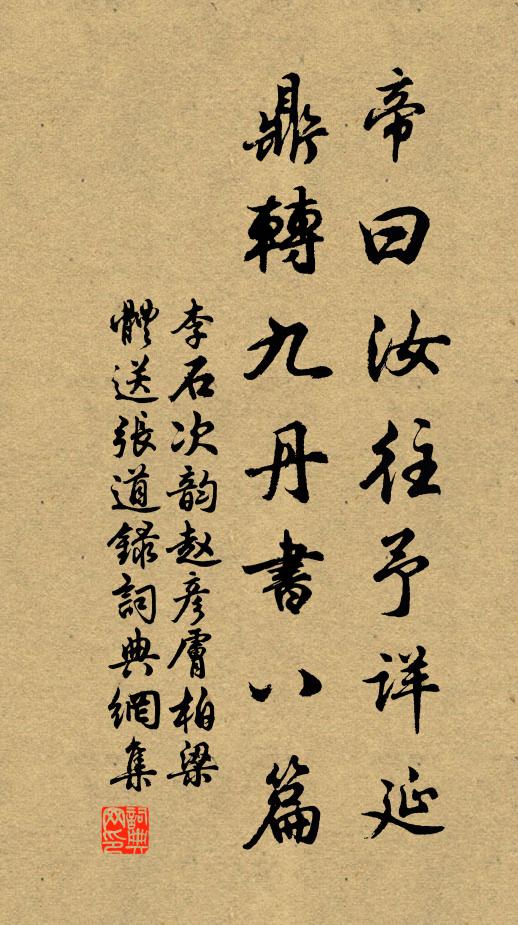 帝曰汝往予详延
鼎轉九丹書八篇
李石次韵赵彦膚柏梁
體送張道録詞典網集
詞典网印